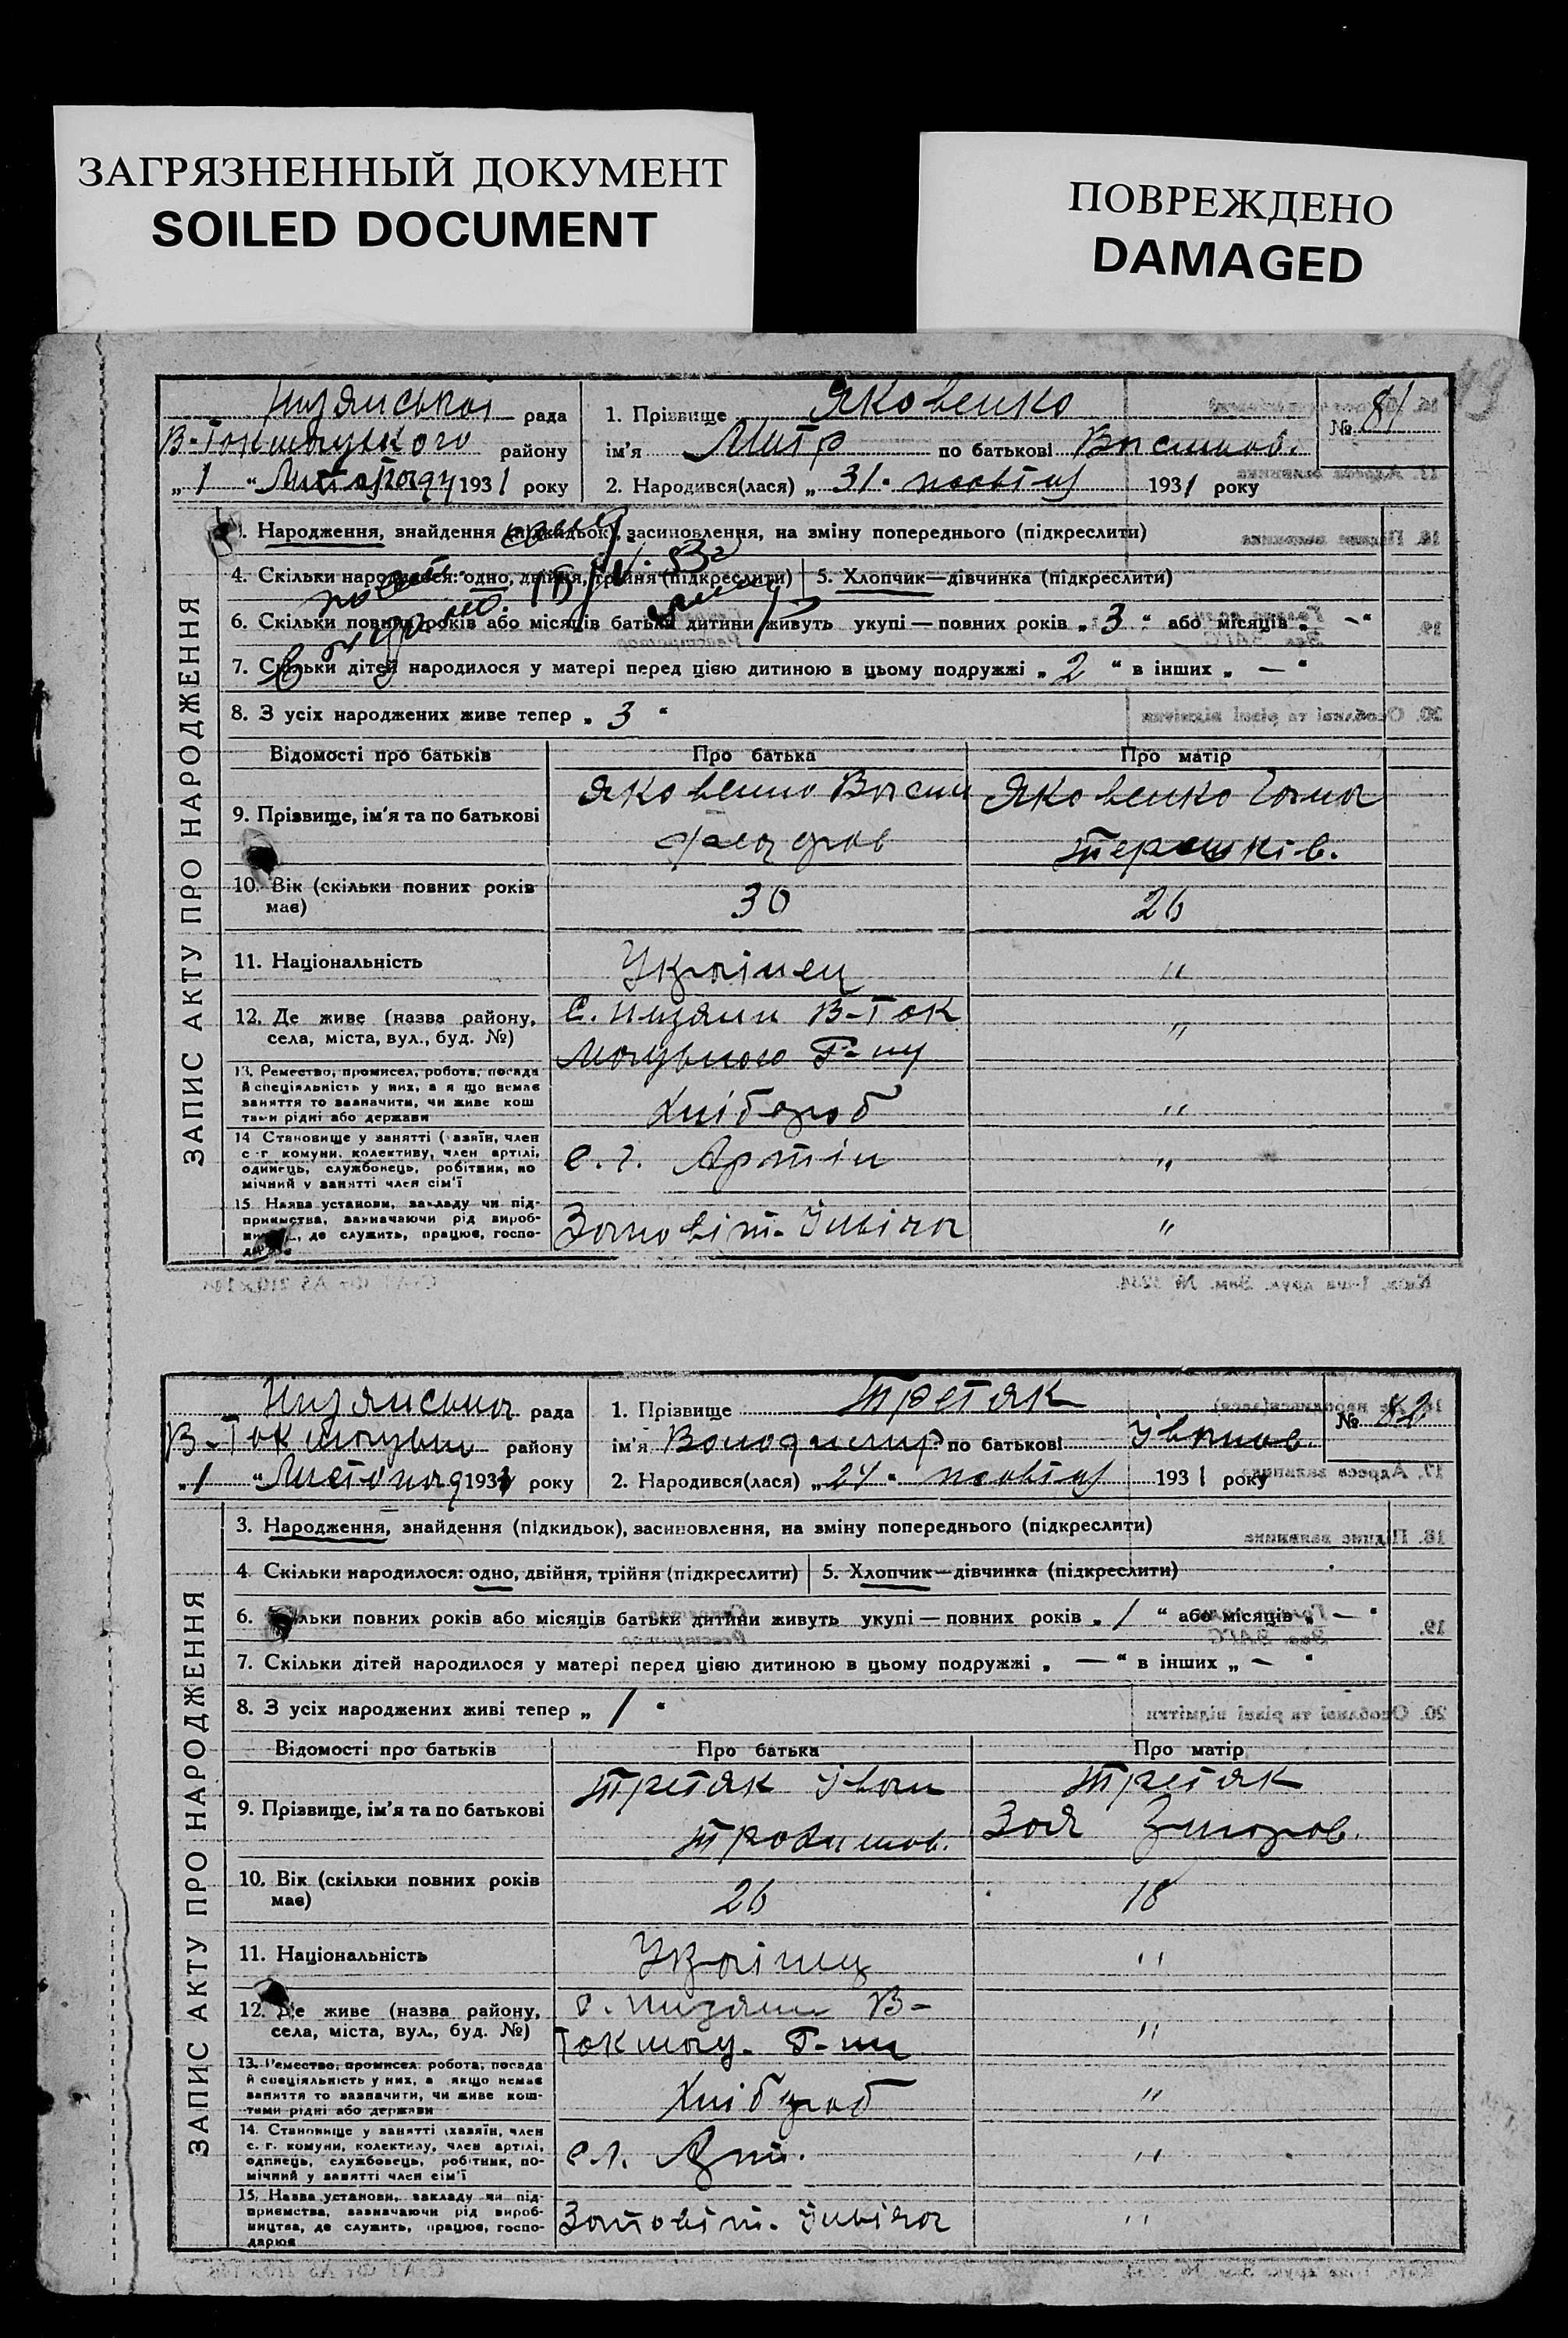 ЗАГРЯЗНЕННЫЙ ДОКУМЕНТ
SOILED DOCUMENT
ПОВРЕЖДЕНО
DAMAGED
рада
В-Токмацького району
„ 1 “ 1931 року
1. Прізвище Яковенко
№ 81
ім'я Митр по батькові Васильов.
2. Народився(лася) „ 31 “ жовтня 1931 року
ЗАПИС АКТУ ПРО НАРОДЖЕННЯ
3. Народження, знайдення (підкидьок), засиновлення, на зміну попереднього (підкреслити)
4. Скільки народилося: одно, двійня, трійня (підкреслити) 5. Хлопчик—дівчинка (підкреслити)
6. Скільки повних років або місяців батьки дитини живуть укупі — повних років „ 3 “ або місяців „ — “
7. Скільки дітей народилося у матері перед цією дитиною в цьому подружжі „ 2 “ в інших „ — “
8. З усіх народжених живе тепер „ 3 “
Відомості про батьків Про батька Про матір
9. Прізвище, ім'я та по батькові
Яковенко Васил Яковенко Ганна
Федоров Терешків.
10. Вік (скільки повних років має) 30 26
11. Національність Українец "
12. Де живе (назва району, села, міста, вул., буд. №)
С. Низяни В-Ток "
мацького Р-ну
13. Ремество, промисел, робота, посада
й спеціяльність у них, а якщо немає
заняття то зазначити, чи живе кош
тами рідні або держави
Хлібороб "
14 Становище у занятті (хазяїн, член
с.-г. комуни, колективу, член артілі,
одинець, службовець, робітник, по
мічний у занятті член сім'ї
с.г. Артіл "
15 Назва установи, закладу чи під-
приємства, зазначаючи рід вироб-
ництва, де служить, працює, госпо-
дарює
Заповіт. Ілліча "
рада
В-Токмацьк району
„ 1 “ Листопад 1931 року
1. Прізвище Третяк
№ 82
ім'я Володимир по батькові Іванов.
2. Народився(лася) „ 24 “ жовтня 1931 року
ЗАПИС АКТУ ПРО НАРОДЖЕННЯ
3. Народження, знайдення (підкидьок), засиновлення, на зміну попереднього (підкреслити)
4. Скільки народилося: одно, двійня, трійня (підкреслити) 5. Хлопчик—дівчинка (підкреслити)
6. Скільки повних років або місяців батьки дитини живуть укупі — повних років „ 1 “ або місяців „ — “
7. Скільки дітей народилося у матері перед цією дитиною в цьому подружжі „ — “ в інших „ — “
8. З усіх народжених живі тепер „ 1 “
Відомості про батьків Про батька Про матір
9. Прізвище, ім'я та по батькові
Третяк Іван Третяк
Трохимов. Зоя
10. Вік (скільки повних років має) 26 18
11. Національність Українец "
12. Де живе (назва району, села, міста, вул., буд. №)
с. Низяни В-
Токмац. Р-ну "
13. Ремество, промисел, робота, посада
й спеціяльність у них, а якщо немає
заняття то зазначити, чи живе кош-
тами рідні або держави
Хлібороб "
14. Становище у занятті (хазяїн, член
с. г. комуни, колективу, член артілі,
одинець, службовець, робітник, по-
мічний у занятті член сім'ї
с.г. Арт. "
15. Назва установи, закладу чи під-
приємства, зазначаючи рід вироб-
ництва, де служить, працює, госпо-
дарює
Заповіт. Ілліча "